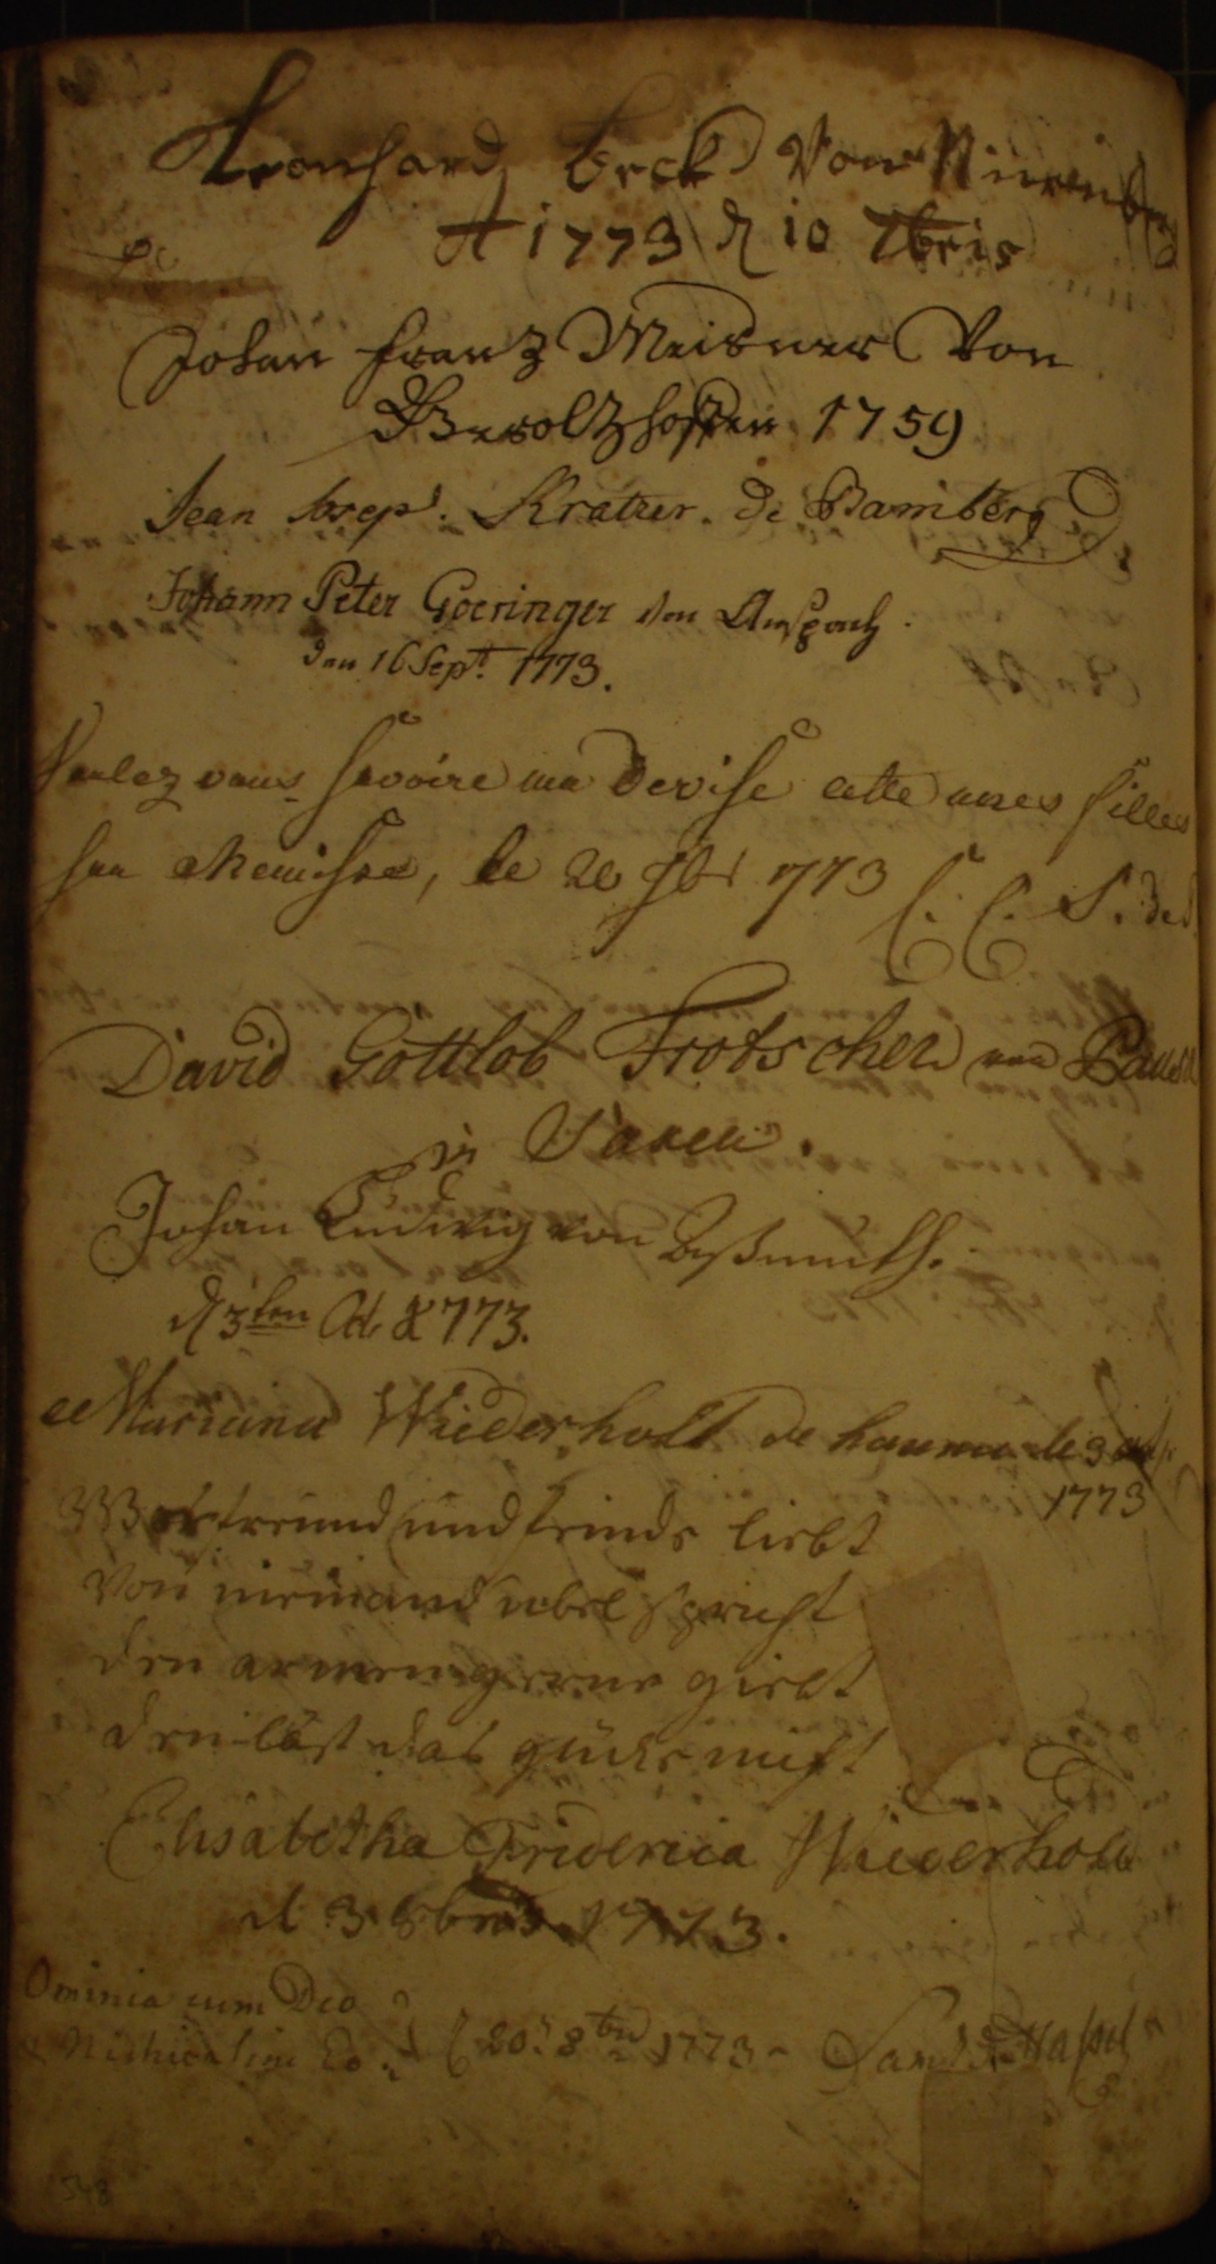 Leonhard Beck Von Nürenberg
A 1773 d 10 7bris
Johan Franz Meisner Von
Gerolzhoffen 1759
Jean Josep. Kratzer. de Bamberg
Johann Peter Goeringer von Anspach.
den 16 Sept. 1773.
Voulez vous savoire ma devise
1773 C. C. S.
David Gottlob Frotscher von
in Saxen.
Johan Ludwig von
d 3ten 1773.
Mariana Wiederholt de hanau le 3
1773
Wer freund und feinde liebt
Von niemand übel spricht
den armen gerne giebt
den läst das glücke nicht
Elisabetha Friderica Wiederholt
d 3 8bris 1773.
Ominia cum Deo
& Nichil sine Eo. 20. 8br 1773
548